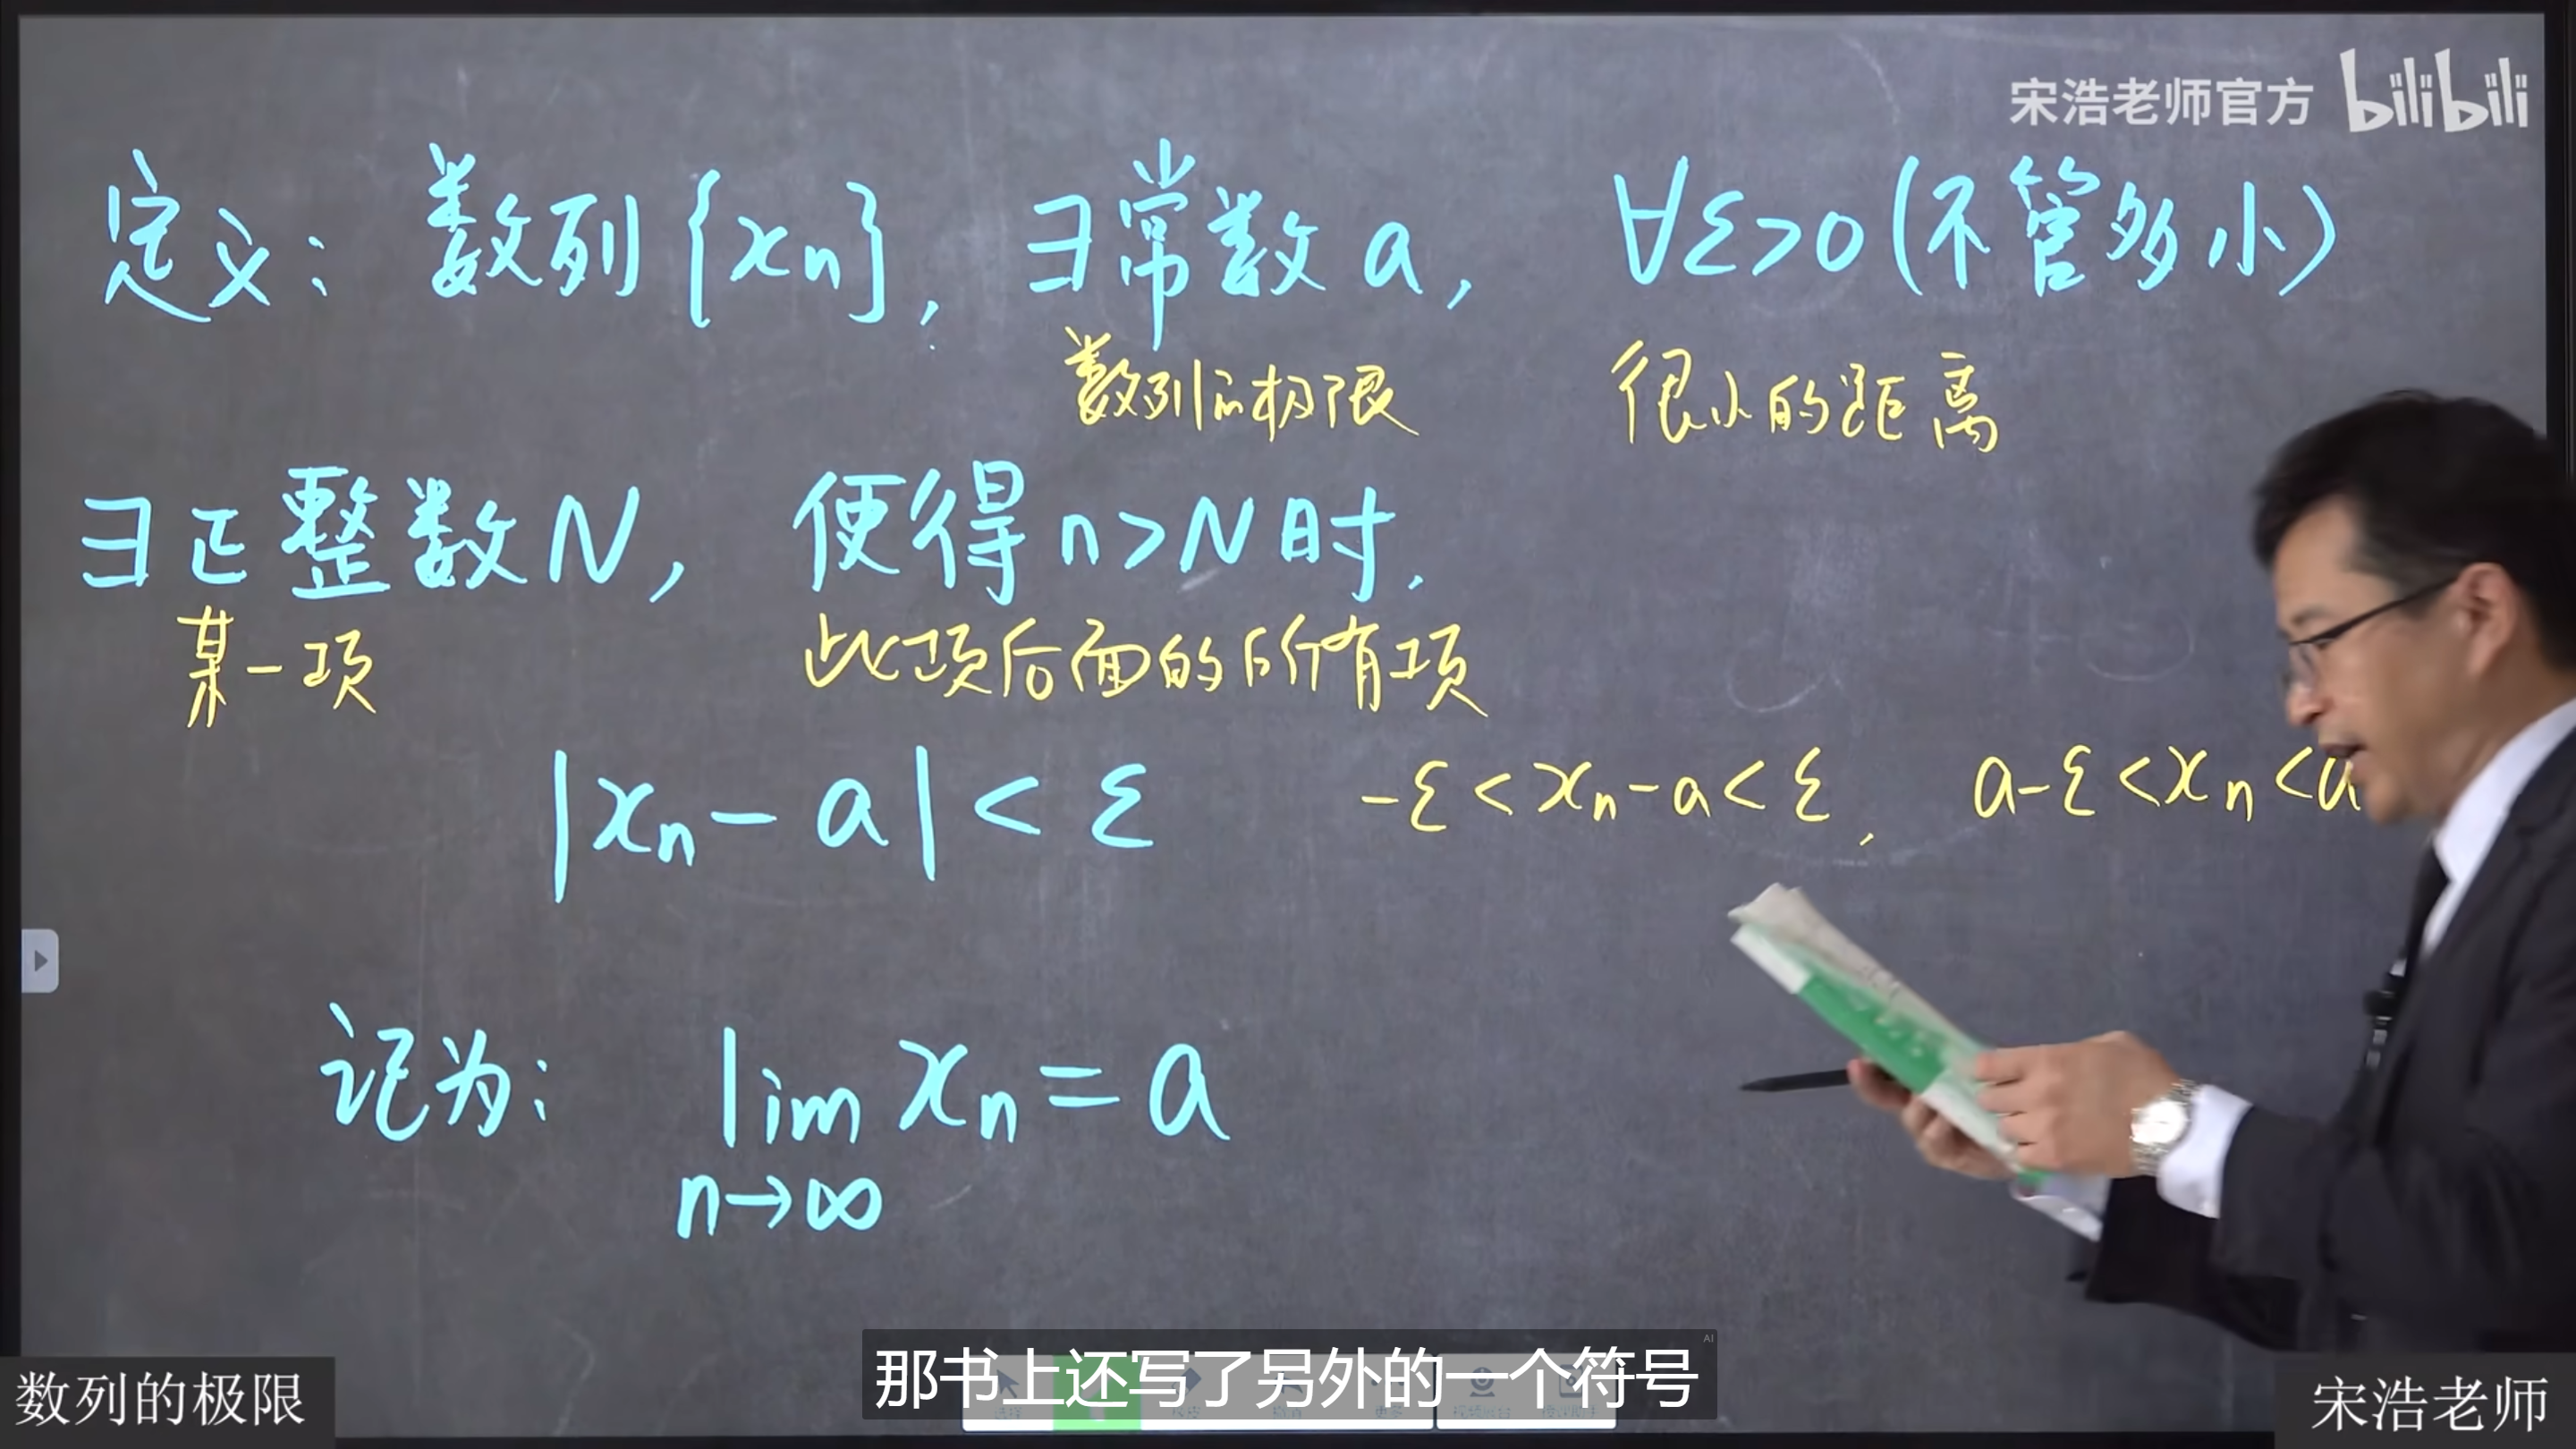 宋浩老师官方 bilibili
定义：数列{xn}，∃常数a，∀ε>0(不管多小)
数列的极限 很小的距离
∃正整数N，使得n>N时，
某一项 此项后面的所有项
|xn-a|<ε -ε<xn-a<ε， a-ε<xn<a
记为： lim xn=a
n→∞
那书上还写了另外的一个符号
AI
数列的极限 宋浩老师